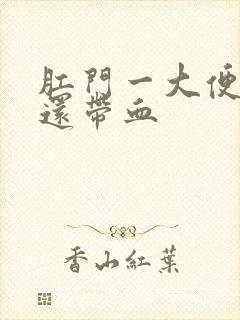 肛門一大便
還帶血
香山紅葉